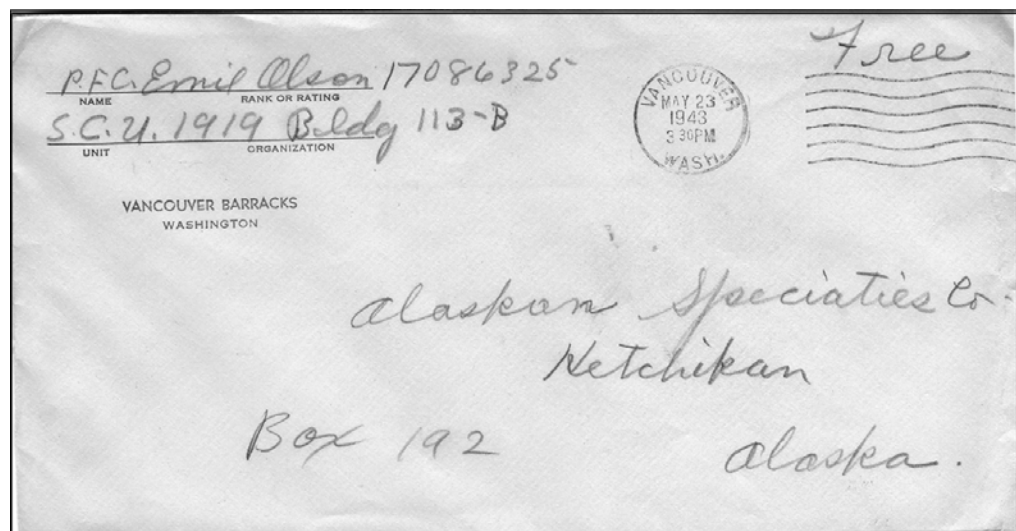 Free
P.F.C. Emil Olson 17086325
NAME RANK OR RATING
S.C.U. 1919 Bldg 113-B
UNIT ORGANIZATION
VANCOUVER BARRACKS
WASHINGTON
VANCOUVER
MAY 23
1943
3 30PM
WASH.
Alaskan Speciaties Co.
Ketchikan
Box 192 Alaska.